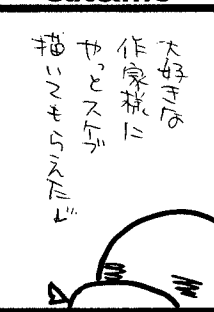 大好きな
作家様に
やっとスケブ
描いてもらえた!!